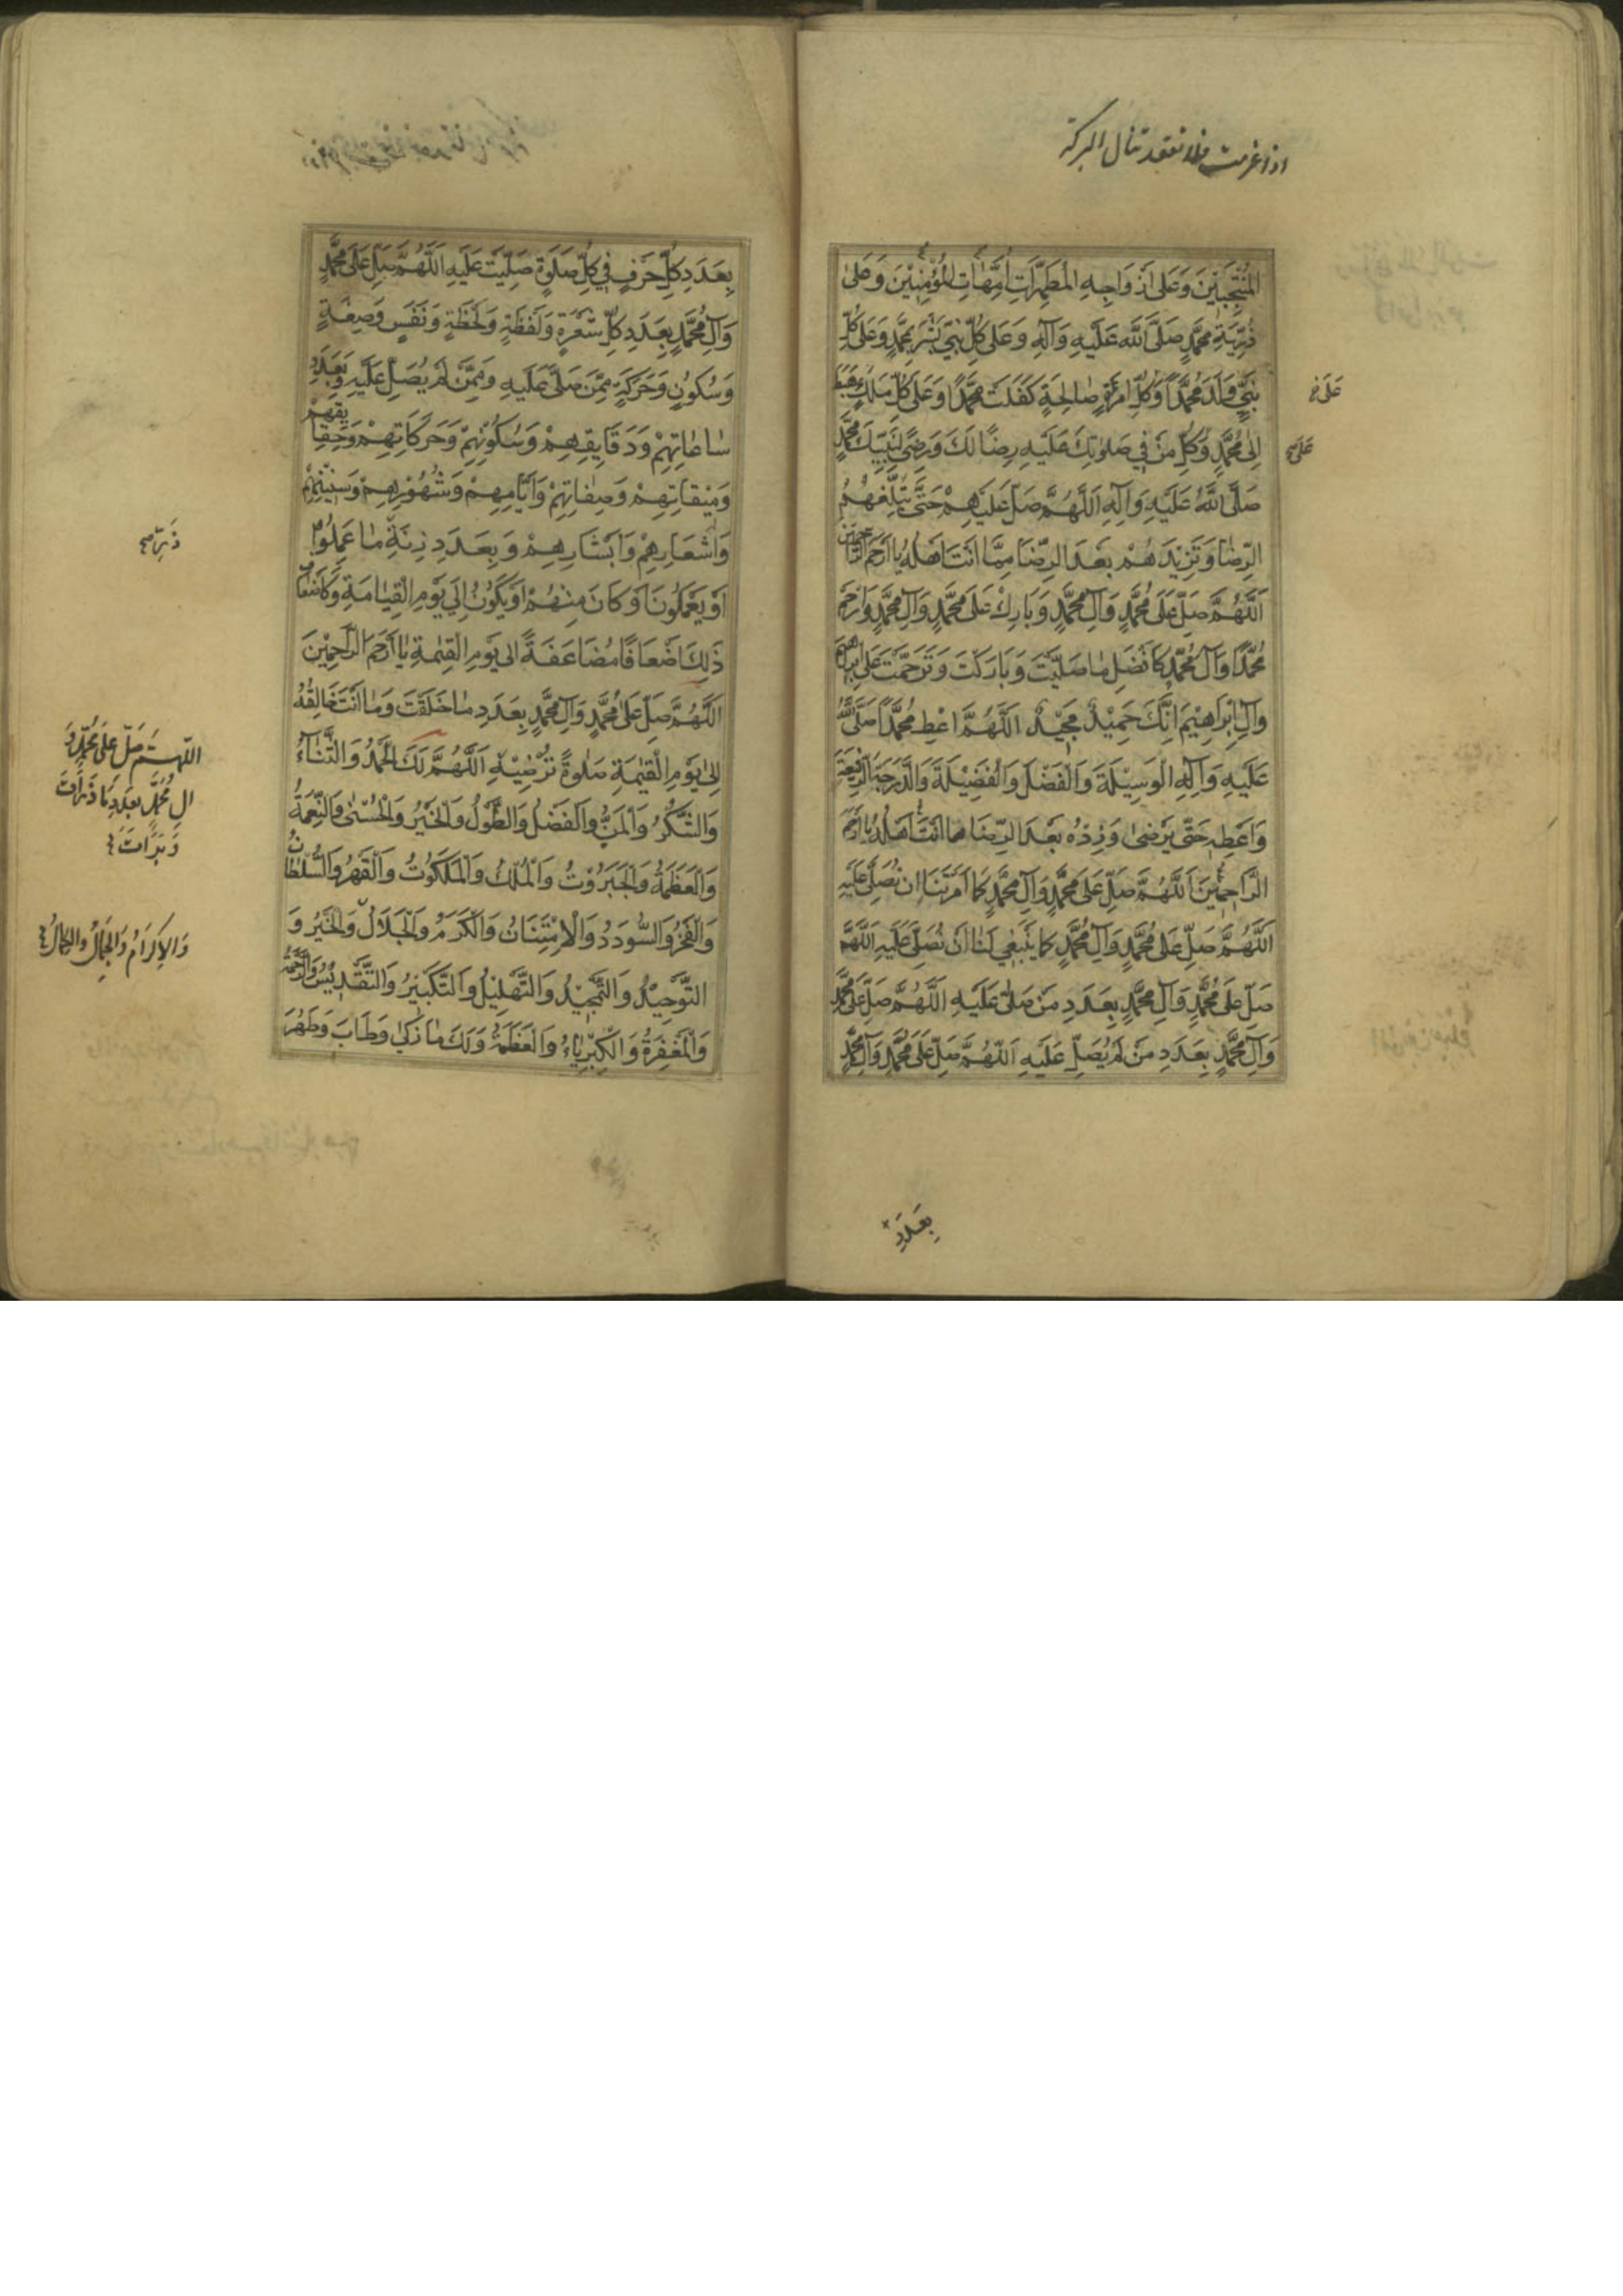 اذا عزمت فلا تقعد تنال البركة
المُنْتَجَبِيْنَ وَعَلىٰ اَزْوَاجِهِ الْمُطَهَّرَاتِ اُمَّهَاتِ الْمُؤْمِنِيْنَ وَعَلىٰ
ذُرِّيَّةِ مُحَمَّدٍ صَلَّى اللهُ عَلَيْهِ وَآلِهِ وَعَلىٰ كُلِّ نَبِيٍّ بَشَّرَ بِمُحَمَّدٍ وَعَلىٰ كُلِّ
نَبِيٍّ وَلَدَ مُحَمَّدًا وَكُلِّ امْرَأَةٍ صَالِحَةٍ كَفَلَتْ مُحَمَّدًا وَعَلىٰ كُلِّ مَلَكٍ هَبَطَ
اِلىٰ مُحَمَّدٍ وَكُلِّ مَنْ فِي صَلَوٰتِكَ عَلَيْهِ رِضًا لَكَ وَرِضًى لِنَبِيِّكَ مُحَمَّدٍ
صَلَّى اللهُ عَلَيْهِ وَآلِهِ اَللّٰهُمَّ صَلِّ عَلَيْهِمْ حَتَّى تُبَلِّغَهُمُ
الرِّضَا وَتَزِيْدَهُمْ بَعْدَ الرِّضَا مِمَّا اَنْتَ اَهْلُهُ يَا اَرْحَمَ الرَّاحِمِيْنَ
اَللّٰهُمَّ صَلِّ عَلىٰ مُحَمَّدٍ وَآلِ مُحَمَّدٍ وَبَارِكْ عَلىٰ مُحَمَّدٍ وَآلِ مُحَمَّدٍ وَارْحَمْ
مُحَمَّدًا وَآلَ مُحَمَّدٍ كَاَفْضَلِ مَا صَلَّيْتَ وَبَارَكْتَ وَتَرَحَّمْتَ عَلىٰ اِبْرَاهِيْمَ
وَآلِ اِبْرَاهِيْمَ اِنَّكَ حَمِيْدٌ مَجِيْدٌ اَللّٰهُمَّ اعْطِ مُحَمَّدًا صَلَّى اللهُ
عَلَيْهِ وَآلِهِ الْوَسِيْلَةَ وَالْفَضْلَ وَالْفَضِيْلَةَ وَالدَّرَجَةَ الرَّفِيْعَةَ
وَاَعْطِهِ حَتّىٰ يَرْضىٰ وَزِدْهُ بَعْدَ الرِّضَا مِمَّا اَنْتَ اَهْلُهُ يَا اَرْحَمَ
الرَّاحِمِيْنَ اَللّٰهُمَّ صَلِّ عَلىٰ مُحَمَّدٍ وَآلِ مُحَمَّدٍ كَمَا اَمَرْتَنَا اَنْ نُصَلِّيَ عَلَيْهِ
اَللّٰهُمَّ صَلِّ عَلىٰ مُحَمَّدٍ وَآلِ مُحَمَّدٍ كَمَا يَنْبَغِي لَنَا اَنْ نُصَلِّيَ عَلَيْهِ اَللّٰهُمَّ
صَلِّ عَلىٰ مُحَمَّدٍ وَآلِ مُحَمَّدٍ بِعَدَدِ مَنْ صَلّىٰ عَلَيْهِ اَللّٰهُمَّ صَلِّ عَلىٰ مُحَمَّدٍ
وَآلِ مُحَمَّدٍ بِعَدَدِ مَنْ لَمْ يُصَلِّ عَلَيْهِ اَللّٰهُمَّ صَلِّ عَلىٰ مُحَمَّدٍ وَآلِ مُحَمَّدٍ
بِعَدَدِ
عَلىٰ
عَلىٰ
بِعَدَدِ كُلِّ حَرْفٍ فِي كُلِّ صَلَوةٍ صَلَّيْتَ عَلَيْهِ اَللّٰهُمَّ صَلِّ عَلىٰ مُحَمَّدٍ
وَآلِ مُحَمَّدٍ بِعَدَدِ كُلِّ شَعْرَةٍ وَلَفْظَةٍ وَلَحْظَةٍ وَنَفَسٍ وَصِفَةٍ
وَسُكُوْنٍ وَحَرَكَةٍ مِمَّنْ صَلّىٰ عَلَيْهِ وَمِمَّنْ لَمْ يُصَلِّ عَلَيْهِ وَبِعَدَدِ
سَاعَاتِهِمْ وَدَقَايِقِهِمْ وَسُكُوْنِهِمْ وَحَرَكَاتِهِمْ وَحَقَايِقِهِمْ
وَمِيْقَاتِهِمْ وَصِفَاتِهِمْ وَاَيَّامِهِمْ وَشُهُوْرِهِمْ وَسِنِيْنِهِمْ
وَاَشْعَارِهِمْ وَاَبْشَارِهِمْ وَبِعَدَدِ زِنَةِ مَا عَمِلُوْا
اَوْ يَعْمَلُوْنَ اَوْ كَانَ مِنْهُمْ اَوْ يَكُوْنُ اِلىٰ يَوْمِ الْقِيَامَةِ وَكَاَضْعَافِ
ذٰلِكَ اَضْعَافًا مُضَاعَفَةً اِلىٰ يَوْمِ الْقِيٰمَةِ يَا اَرْحَمَ الرَّاحِمِيْنَ
اَللّٰهُمَّ صَلِّ عَلىٰ مُحَمَّدٍ وَآلِ مُحَمَّدٍ بِعَدَدِ مَا خَلَقْتَ وَمَا اَنْتَ خَالِقُهُ
اِلىٰ يَوْمِ الْقِيٰمَةِ صَلوةً تُرْضِيْهِ اَللّٰهُمَّ لَكَ الْحَمْدُ وَالثَّنَآءُ
وَالشُّكْرُ وَالْمَنُّ وَالْفَضْلُ وَالطَّوْلُ وَالْخَيْرُ وَالْحُسْنىٰ وَالنِّعْمَةُ
وَالْعَظَمَةُ وَالْجَبَرُوْتُ وَالْمُلْكُ وَالْمَلَكُوْتُ وَالْقَهْرُ وَالسُّلْطَانُ
وَالْفَخْرُ وَالسُّودَدُ وَالْاِمْتِنَانُ وَالْكَرَمُ وَالْجَلَالُ وَالْخَيْرُ وَ
التَّوْحِيْدُ وَالتَّمْجِيْدُ وَالتَّهْلِيْلُ وَالتَّكْبِيْرُ وَالتَّقْدِيْسُ وَالرَّحْمَةُ
وَالْمَغْفِرَةُ وَالْكِبْرِيَاءُ وَالْعَظَمَةُ وَلَكَ مَا زَكىٰ وَطَابَ وَطَهُرَ
اللّهم صَلِّ عَلىٰ مُحَمَّدٍ وَ
ال مُحَمَّدٍ بعَدَدِ مَا ذَرَأتَ
وَبَرَأتَ
وَالاِكرَامُ وَالجَمَالُ وَالكَمَالُ